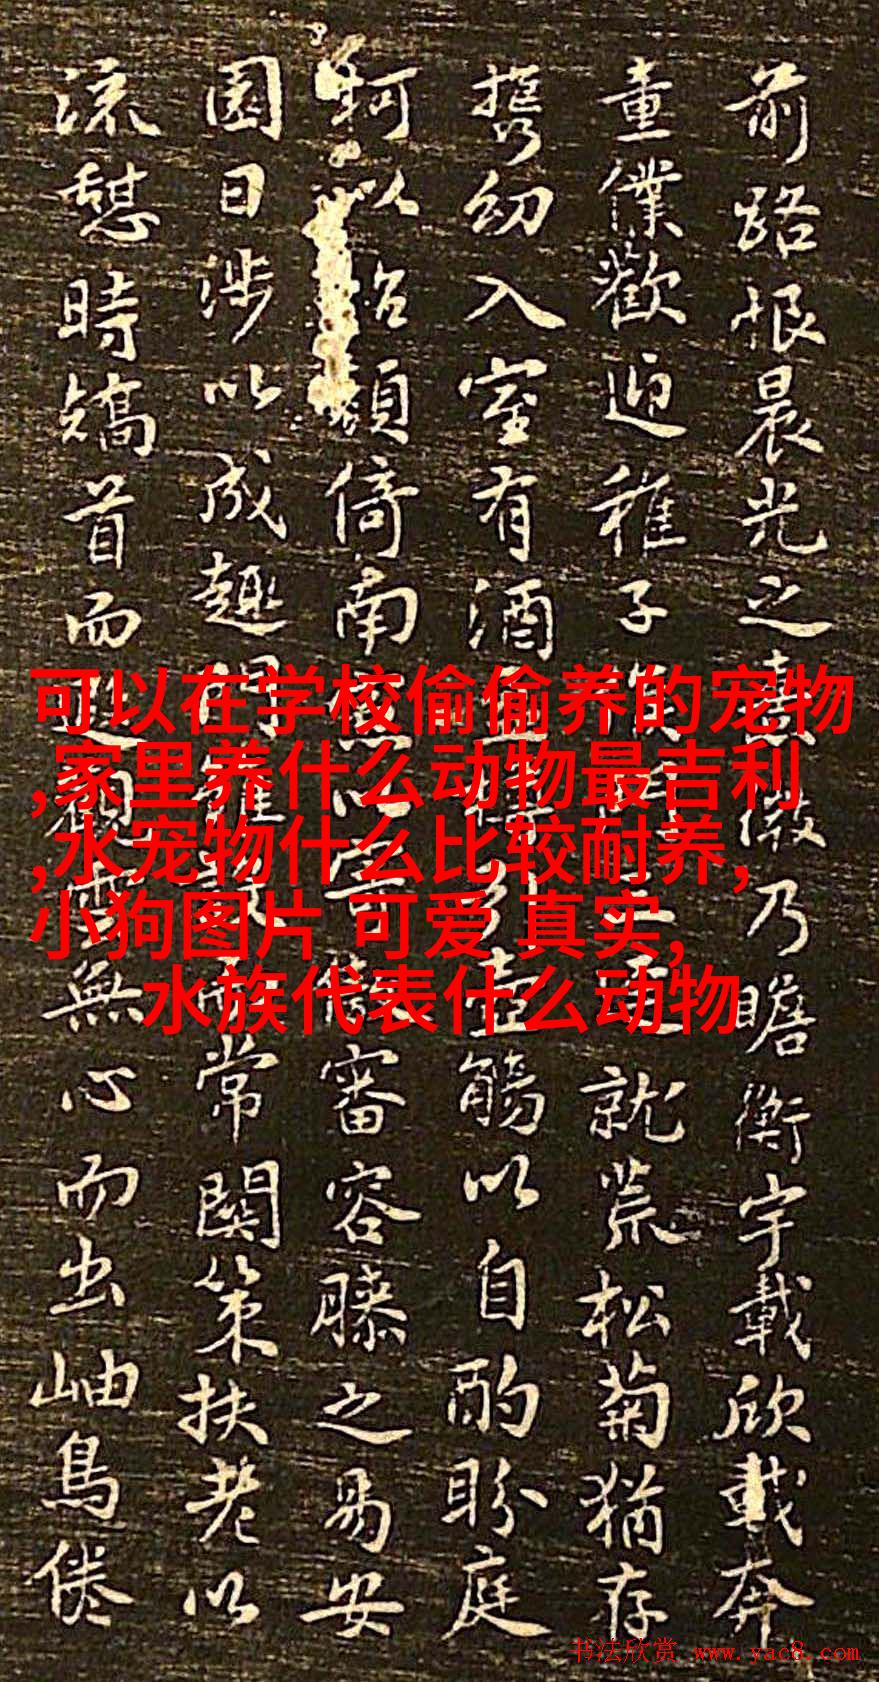 前路恨晨光之熹微乃瞻衡宇載欣載奔
童僕歡迎稚子候就荒松菊猶存
携幼入室有酒盈樽引壺觴以自酌眄庭
柯以怡顔倚南窓以寄傲審容膝之易安
園日涉以成趣門雖設而常關策扶老以
流憩時矯首而遐觀雲無心而出岫鳥倦
可以在学校偷偷养的宠物
,家里养什么动物最吉利
,水宠物什么比较耐养,
小狗图片 可爱 真实,
水族代表什么动物
书法欣赏 www.yac8.com